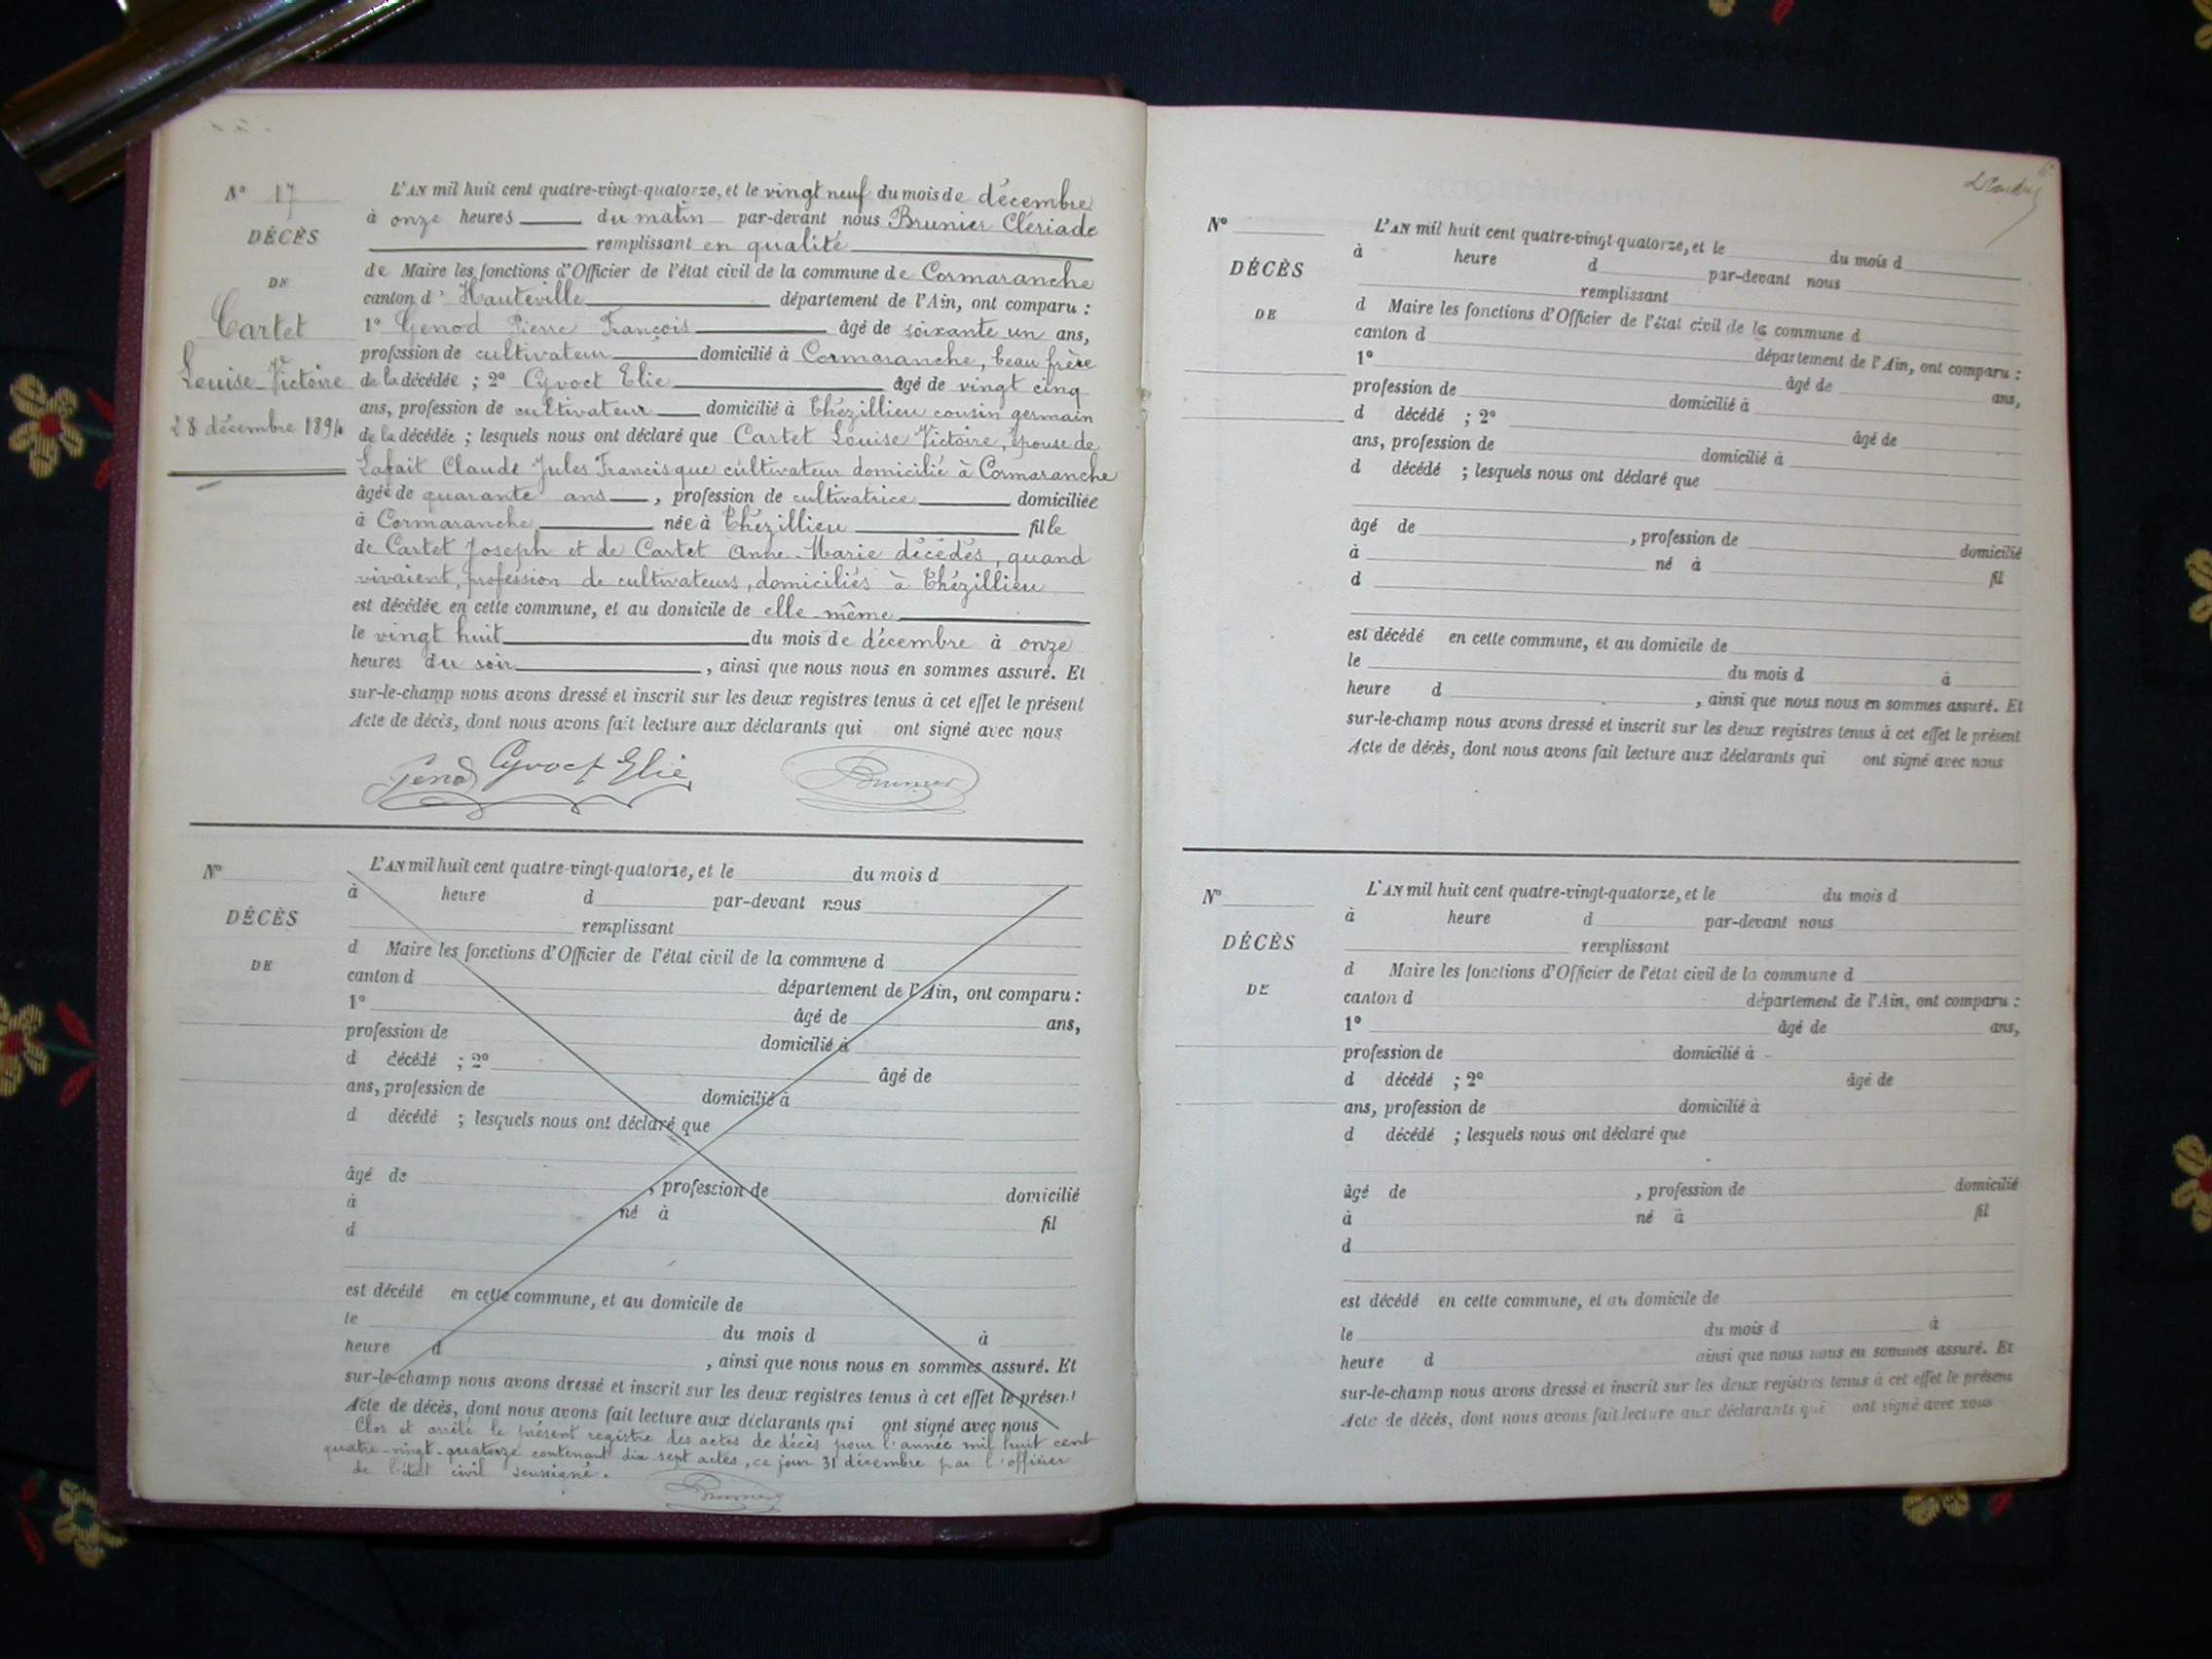 N° 17
DÉCÈS
DE
Cartet
Louise-Victoire
28 décembre 1894
L'AN mil huit cent quatre-vingt-quatorze, et le vingt neuf du mois de décembre
à onze heures du matin par-devant nous Brunier Clériade
remplissant en qualité
de Maire les fonctions d'Officier de l'état civil de la commune de Cormaranche
canton d' Hauteville département de l'Ain, ont comparu :
1° Genod Pierre François âgé de soixante un ans,
profession de cultivateur domicilié à Cormaranche, beau frère
de la décédée ; 2° Cyvoct Elie âgé de vingt cinq
ans, profession de cultivateur domicilié à Thézillieu cousin germain
de la décédée ; lesquels nous ont déclaré que Cartet Louise Victoire, épouse de
Lafait Claude Jules Francisque cultivateur domicilié à Cormaranche
âgée de quarante ans, profession de cultivatrice domiciliée
à Cormaranche née à Thézillieu fille
de Cartet Joseph et de Cartet Anne-Marie décédés, quand
vivaient, profession de cultivateurs, domiciliés à Thézillieu
est décédée en cette commune, et au domicile de elle-même
le vingt huit du mois de décembre à onze
heures du soir, ainsi que nous nous en sommes assuré. Et
sur-le-champ nous avons dressé et inscrit sur les deux registres tenus à cet effet le présent
Acte de décès, dont nous avons fait lecture aux déclarants qui ont signé avec nous
Genod Cyvoct Elie Brunier
N°
DÉCÈS
DE
L'AN mil huit cent quatre-vingt-quatorze, et le du mois d
à heure d par-devant nous
remplissant
d Maire les fonctions d'Officier de l'état civil de la commune d
canton d département de l'Ain, ont comparu :
1° âgé de ans,
profession de domicilié à
d décédé ; 2° âgé de
ans, profession de domicilié à
d décédé ; lesquels nous ont déclaré que
âgé de , profession de domicilié
à né à fil
d
est décédé en cette commune, et au domicile de
le du mois d à
heure d , ainsi que nous nous en sommes assuré. Et
sur-le-champ nous avons dressé et inscrit sur les deux registres tenus à cet effet le présent
Acte de décès, dont nous avons fait lecture aux déclarants qui ont signé avec nous
Clos et arrêté le présent registre des actes de décès pour l'année mil huit cent
quatre-vingt-quatorze contenant dix sept actes, ce jour 31 décembre par l'officier
de l'état civil soussigné.
Brunier
N°
DÉCÈS
DE
L'AN mil huit cent quatre-vingt-quatorze, et le du mois d
à heure d par-devant nous
remplissant
d Maire les fonctions d'Officier de l'état civil de la commune d
canton d département de l'Ain, ont comparu :
1° âgé de ans,
profession de domicilié à
d décédé ; 2° âgé de
ans, profession de domicilié à
d décédé ; lesquels nous ont déclaré que
âgé de , profession de domicilié
à né à fil
d
est décédé en cette commune, et au domicile de
le du mois d à
heure d , ainsi que nous nous en sommes assuré. Et
sur-le-champ nous avons dressé et inscrit sur les deux registres tenus à cet effet le présent
Acte de décès, dont nous avons fait lecture aux déclarants qui ont signé avec nous
N°
DÉCÈS
DE
L'AN mil huit cent quatre-vingt-quatorze, et le du mois d
à heure d par-devant nous
remplissant
d Maire les fonctions d'Officier de l'état civil de la commune d
canton d département de l'Ain, ont comparu :
1° âgé de ans,
profession de domicilié à
d décédé ; 2° âgé de
ans, profession de domicilié à
d décédé ; lesquels nous ont déclaré que
âgé de , profession de domicilié
à né à fil
d
est décédé en cette commune, et au domicile de
le du mois d à
heure d ainsi que nous nous en sommes assuré. Et
sur-le-champ nous avons dressé et inscrit sur les deux registres tenus à cet effet le présent
Acte de décès, dont nous avons fait lecture aux déclarants qui ont signé avec nous